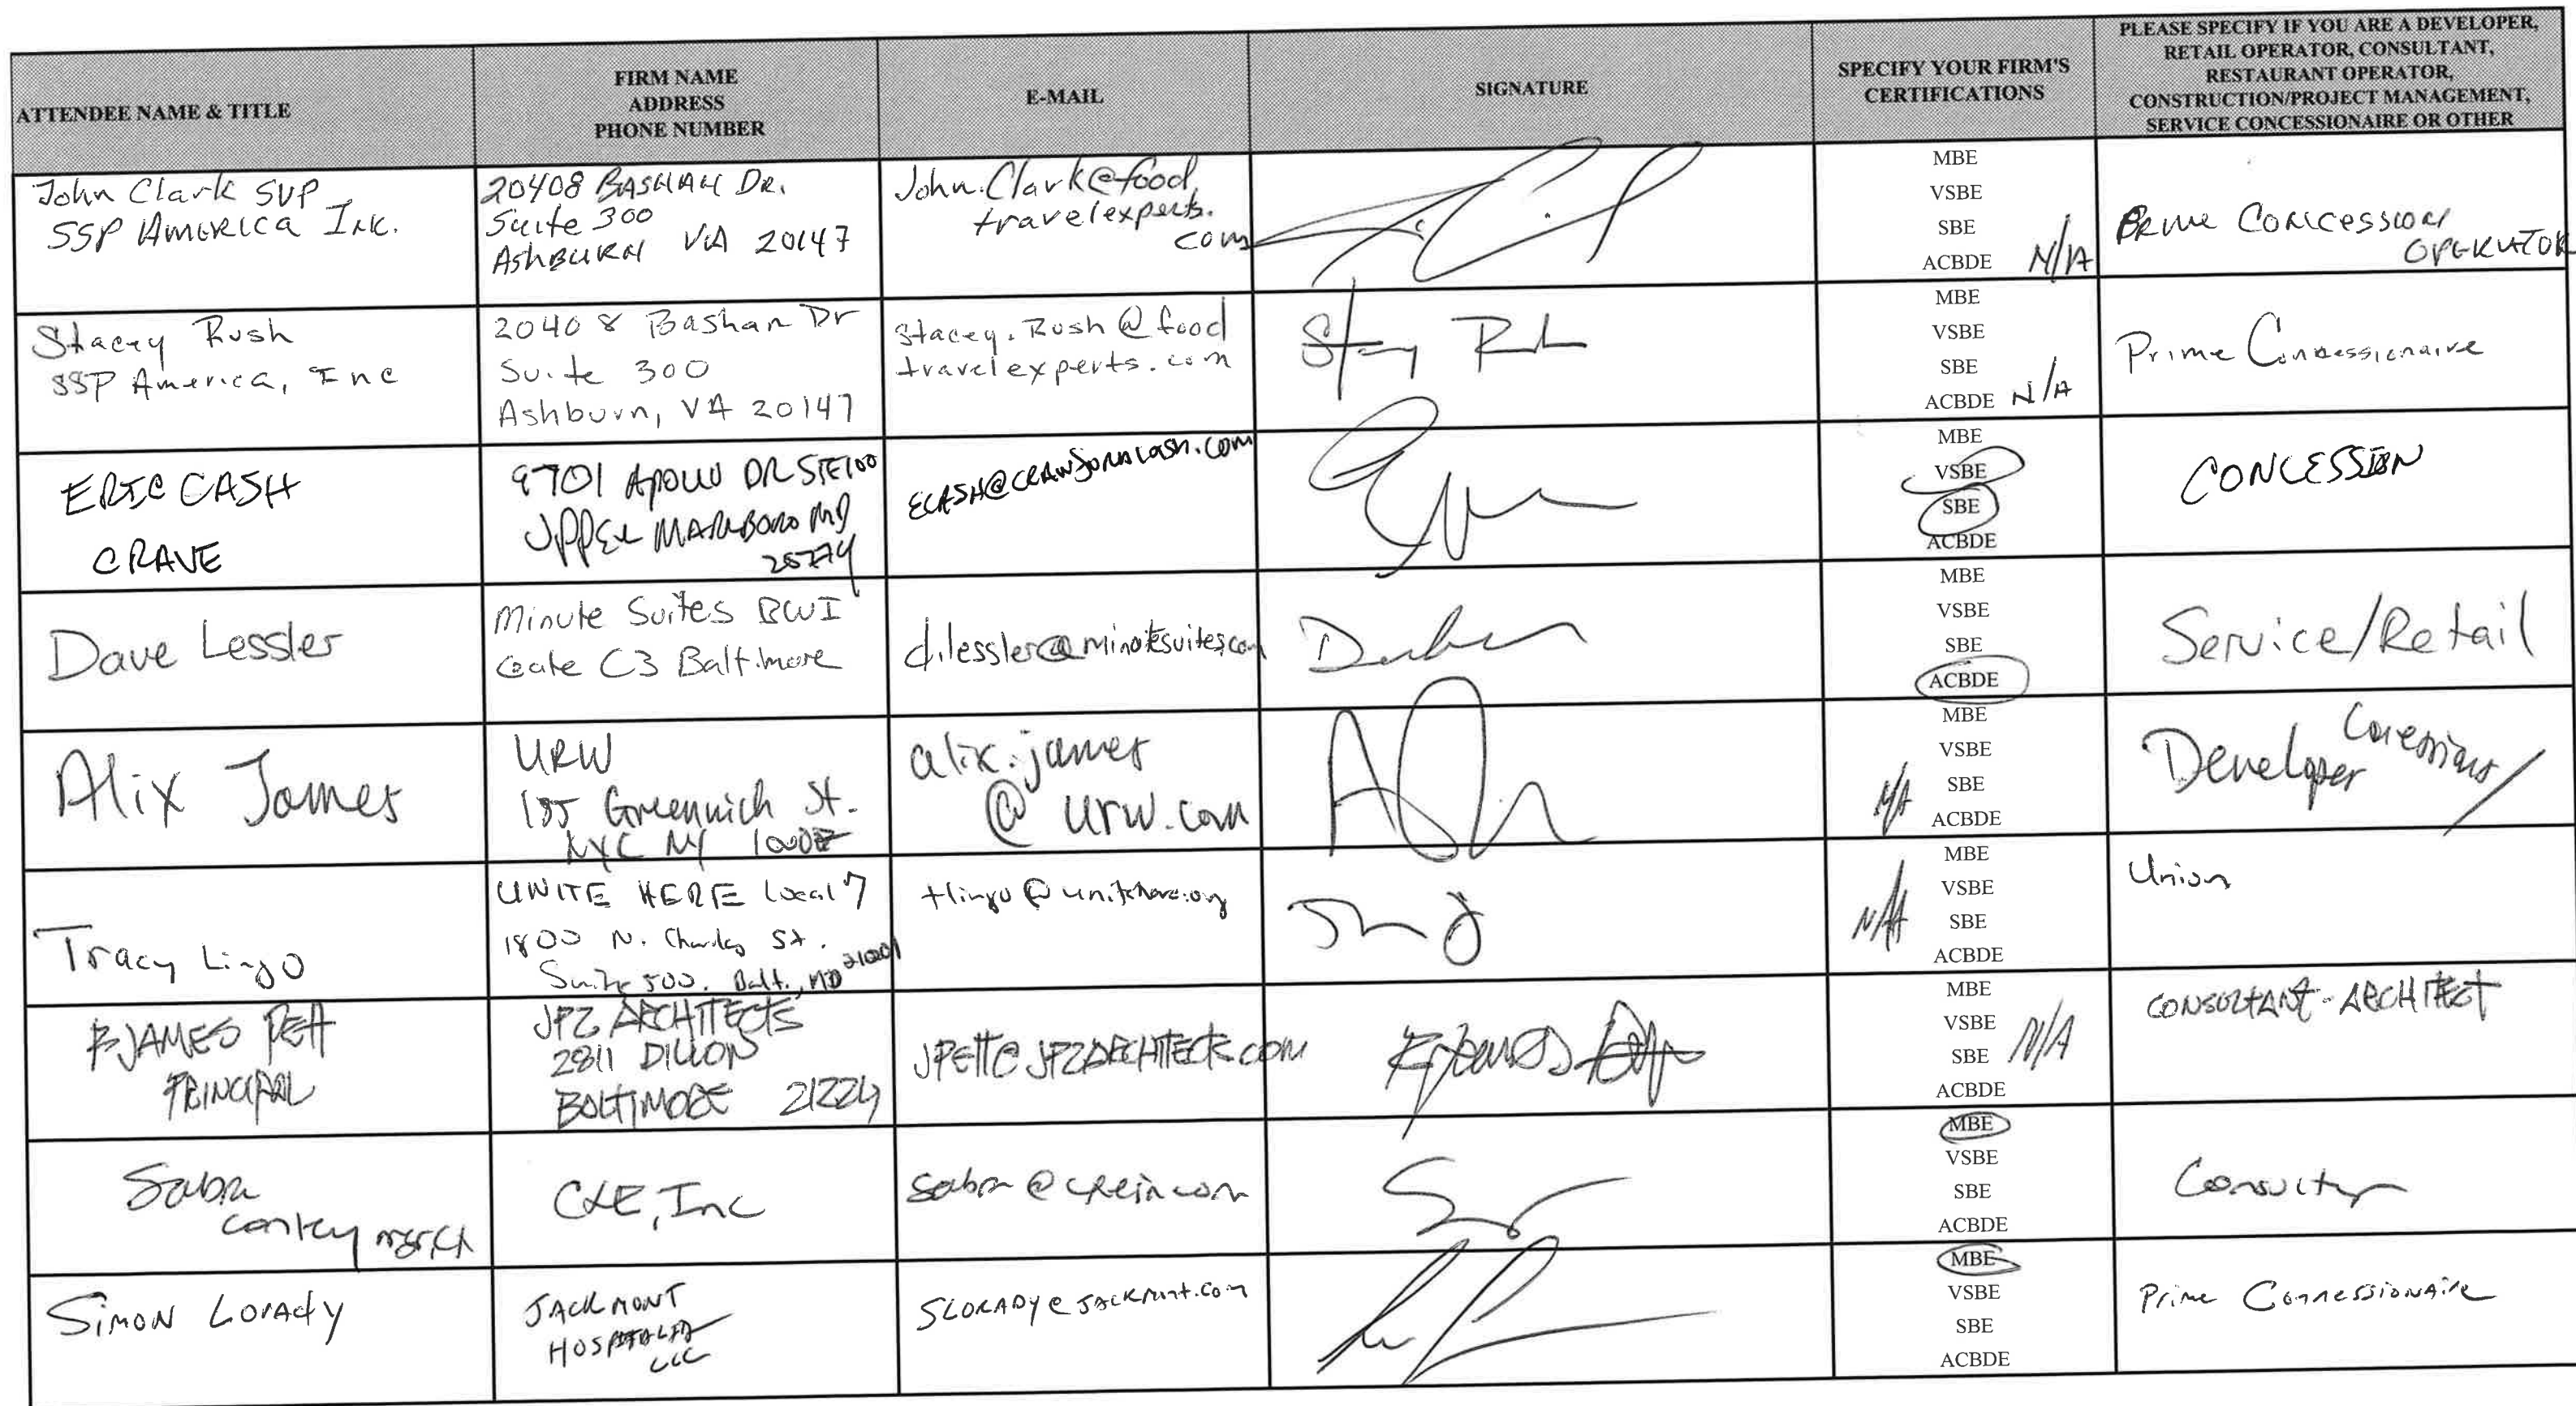 ATTENDEE NAME & TITLE
FIRM NAME
ADDRESS
PHONE NUMBER
E-MAIL
SIGNATURE
SPECIFY YOUR FIRM'S
CERTIFICATIONS
PLEASE SPECIFY IF YOU ARE A DEVELOPER,
RETAIL OPERATOR, CONSULTANT,
RESTAURANT OPERATOR,
CONSTRUCTION/PROJECT MANAGEMENT,
SERVICE CONCESSIONAIRE OR OTHER
John Clark SVP
SSP AMERICA INC.
20408 BASHAN DR.
Suite 300
ASHBURN VA 20147
John.Clark@food
travelexperts.
com
MBE
VSBE
SBE
ACBDE N/A
PRIME CONCESSION
OPERATOR
Stacey Rush
SSP America, Inc
20408 Bashan Dr
Suite 300
Ashburn, VA 20147
Stacey.Rush@food
travelexperts.com
MBE
VSBE
SBE
ACBDE N/A
Prime Concessionaire
ERIC CASH
CRAVE
9701 APOLLO DR STE100
UPPER MARLBORO MD
MBE
VSBE
SBE
ACBDE
CONCESSION
Dave Lessler
Minute Suites BWI
Gate C3 Baltimore
d.lessler@minutesuites.com
MBE
VSBE
SBE
ACBDE
Service/Retail
Alix James
URW
185 Greenwich St.
NYC NY
alix.james
@ urw.com
MBE
VSBE
N/A SBE
ACBDE
Concessions
Developer /
Tracy Lingo
UNITE HERE Local 7
1800 N. Charles St.
Suite 500. Balt., MD 21201
tlingo@unitehere.org
MBE
VSBE
N/A SBE
ACBDE
Union
JAMES PETT
PRINCIPAL
JPZ ARCHITECTS
2811 DILLON
BALTIMORE 21224
JPETT@JPZARCHITECTS.COM
MBE
VSBE
SBE N/A
ACBDE
CONSULTANT-ARCHITECT
Sabra
Inc
MBE
VSBE
SBE
ACBDE
Simon Lorady
JACKMONT
HOSPITALITY
LLC
SLORADY@JACKMONT.COM
MBE
VSBE
SBE
ACBDE
Prime Concessionaire